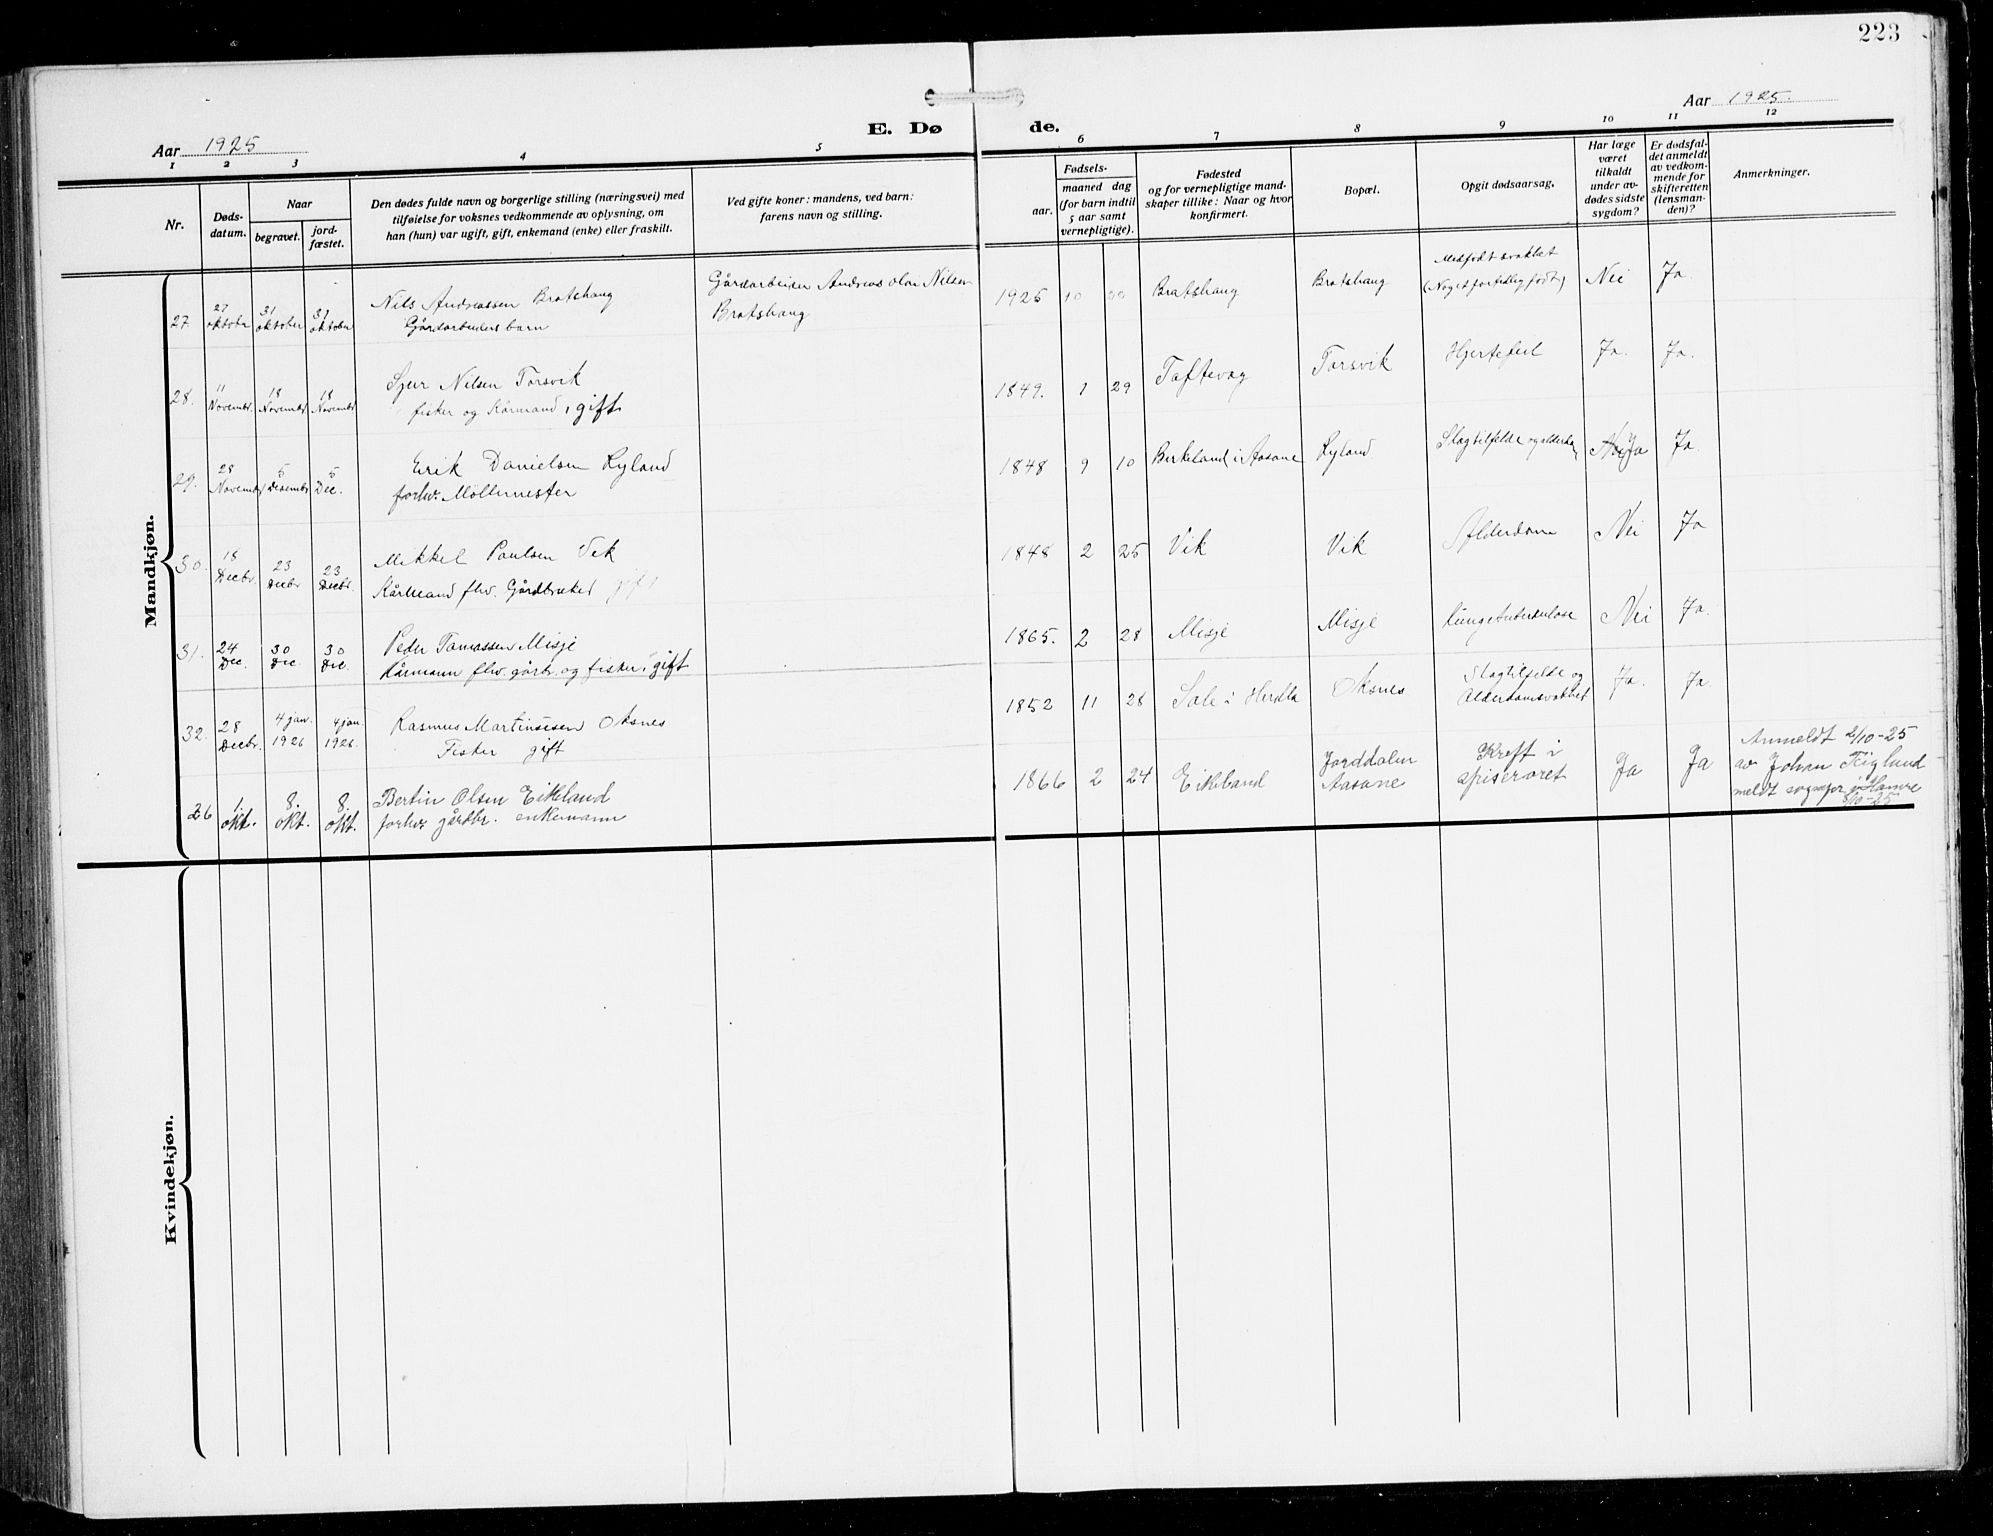 223
Aar 1925
E. Dø de.
Aar 1925.
1 2 3 4 5 6 7 8 9 10 11 12
Nr.
Døds-
datum.
Naar
begravet.
jord-
fæstet.
Den dødes fulde navn og borgerlige stilling (næringsvei) med
tilføielse for voksnes vedkommende av oplysning, om
han (hun) var ugift, gift, enkemand (enke) eller fraskilt.
Ved gifte koner: mandens, ved barn:
farens navn og stilling.
Fødsels-
aar.
maaned dag
(for barn indtil
5 aar samt
vernepligtige).
Fødested
og for vernepligtige mand-
skaper tillike: Naar og hvor
konfirmert.
Bopæl.
Opgit dødsaarsag.
Har læge
været
tilkaldt
under av-
dødes sidste
sygdom?
Er dødsfal-
det anmeldt
av vedkom-
mende for
skifteretten
(lensman-
den)?
Anmerkninger.
Mandkjøn.
27. 27 oktober 31 oktober 31 oktober
Nils Andreassen Bratshaug
Gårdarbeiders barn
Gårdarbeider Andreas Olai Nilsen
Bratshaug
1925 10 Bratshaug Bratshaug
Medfødt svakhet
(Noget fortidlig født)
Nei Ja.
28. 11 Novembr. 18 Novembr 18 Novembr
Sjur Nilsen Torsvik
fisker og Kårmand, gift
1849. 1 29 Toftevag Torsvik Hjertefeil Ja. Ja.
29. 28 Novembr 5 Desembr 5 Dec.
Erik Danielsen Ryland
forhv. Møllemester
1848 9 10 Birkeland i Aasane Ryland Slagtilfelde og alderd. Ja Ja.
30. 18 Decbr. 23 Decbr 23 Decbr.
Mikkel Paulsen Vik
Kårmand fhv. Gårdbruker gift
1848 2 25 Vik Vik Alderdom Nei Ja
31. 24 Dec. 30 Dec 30 Dec.
Peder Tomassen Misje
Kårmann fhv. gårbr. og fisker, gift
1865. 2 28 Misje Misje Lungetuberkulose Nei Ja.
32. 28 Decbr. 4 jan. 1926 4 jan. 1926.
Rasmus Martinsesen Oksnes
Fisker gift
1852 11 28 Sole i Herdla Oksnes
Slagtilfelde og
Alderdomsvakhet
Ja. Ja.
26 1. okt. 8. okt. 8. okt.
Bertin Olsen Eikeland
forhv. gårdbr. enkemann
1866 2 24 Eikeland
Jorddalen
Aasane
Kreft i
spiserøret
Ja Ja
Anmeldt 2/10-25
av Johan Teiglund
meldt sognepr. i Hamre
8/10-25
Kvindekjøn.